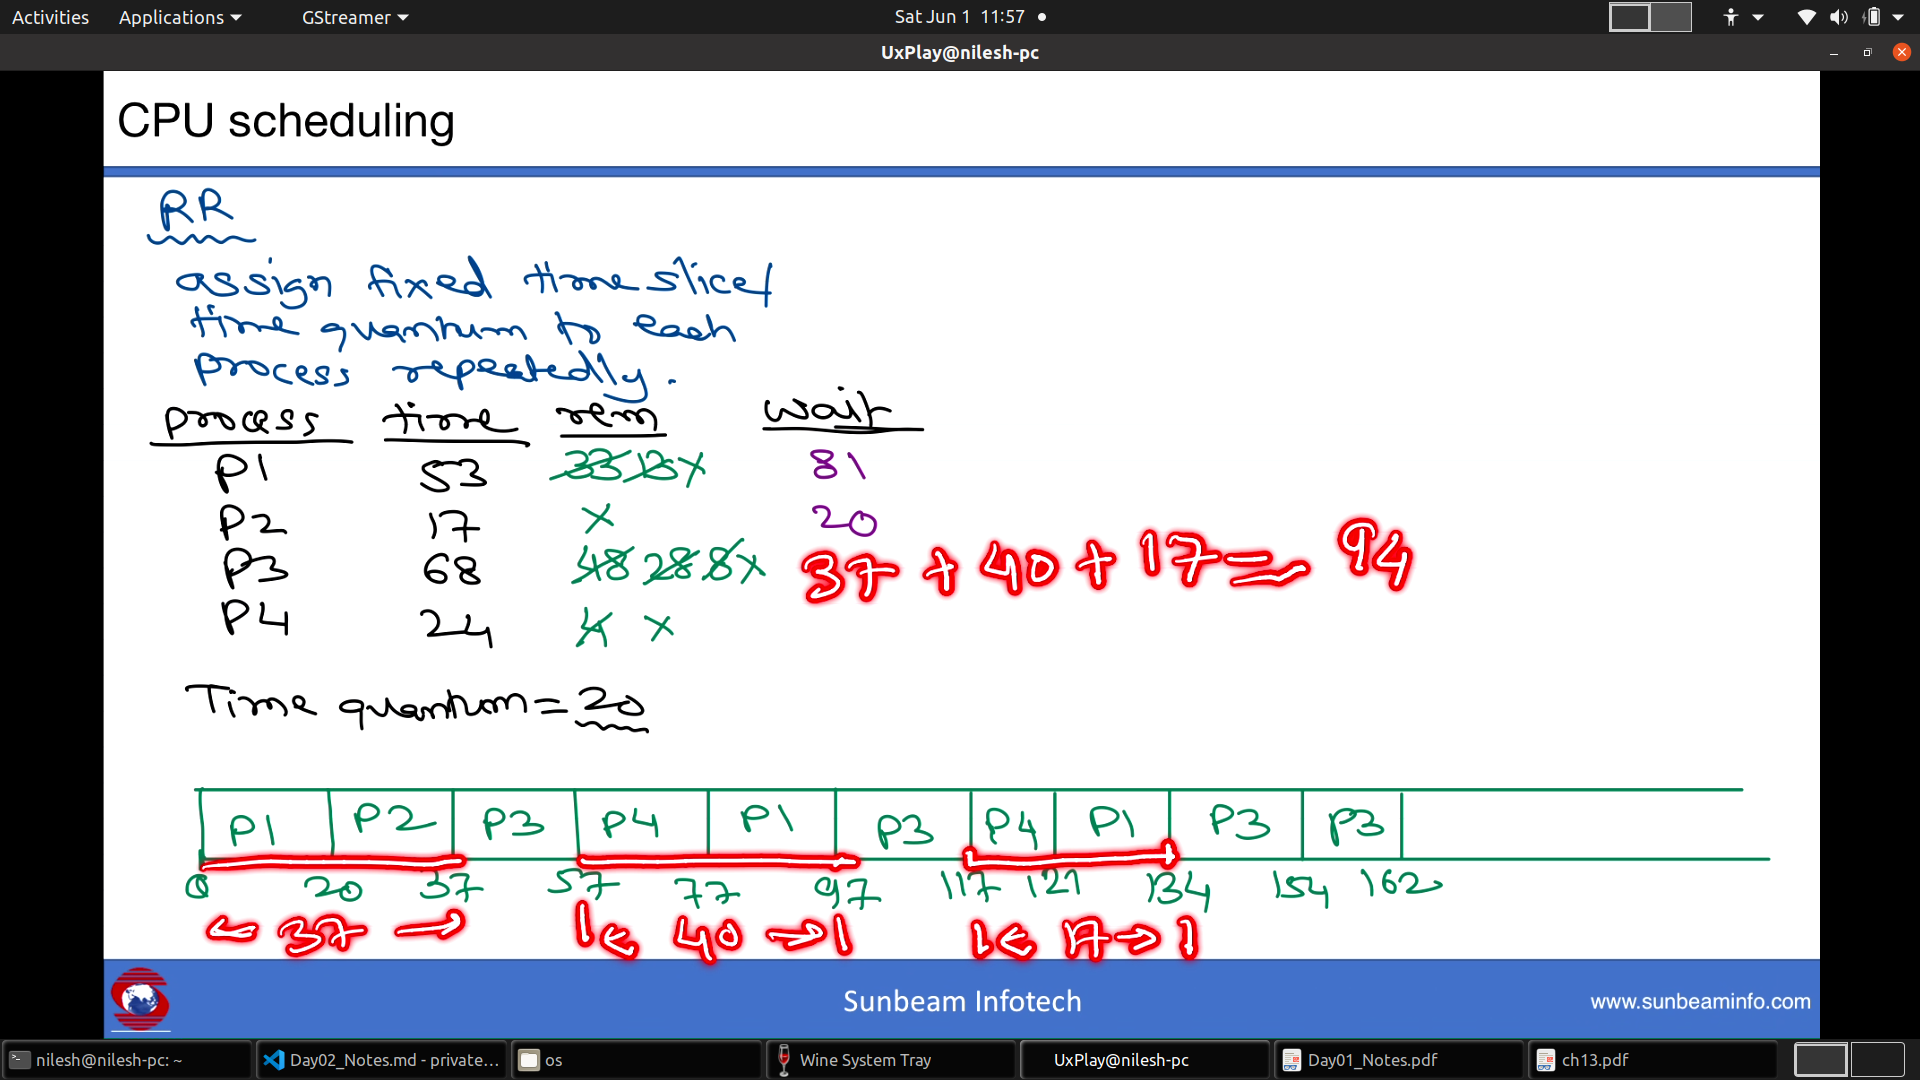 Activities Applications GStreamer Sat Jun 1 11:57
UxPlay@nilesh-pc
CPU scheduling
RR
assign fixed time slice/
time quantum to each
process repeatedly.
process time rem wait
P1 53 33 13 x 81
P2 17 x 20
P3 68 48 28 8 x 37 + 40 + 17 = 94
P4 24 4 x
Time quantum = 20
P1 P2 P3 P4 P1 P3 P4 P1 P3 P3
0 20 37 57 77 97 117 121 134 154 162
← 37 → |← 40 →| |← 17 →|
Sunbeam Infotech www.sunbeaminfo.com
nilesh@nilesh-pc: ~ Day02_Notes.md - private... os Wine System Tray UxPlay@nilesh-pc Day01_Notes.pdf ch13.pdf